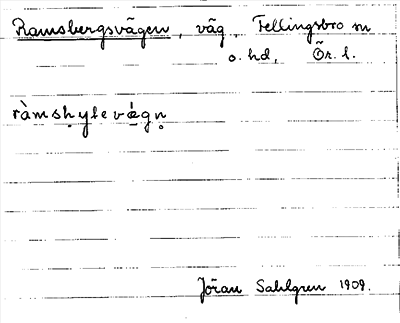 Ramsbergsvägen, väg, Fellingsbro sn
o. hd, Ör. l.
ràmshyttevǽgn̥
Jöran Sahlgren 1909.